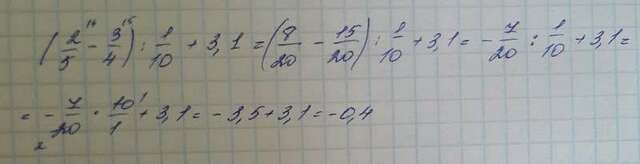 (2/5 - 3/4) : 1/10 + 3,1 = (8/20 - 15/20) : 1/10 + 3,1 = - 7/20 : 1/10 + 3,1 =
= - 7/20 · 10/1 + 3,1 = - 3,5 + 3,1 = - 0,4